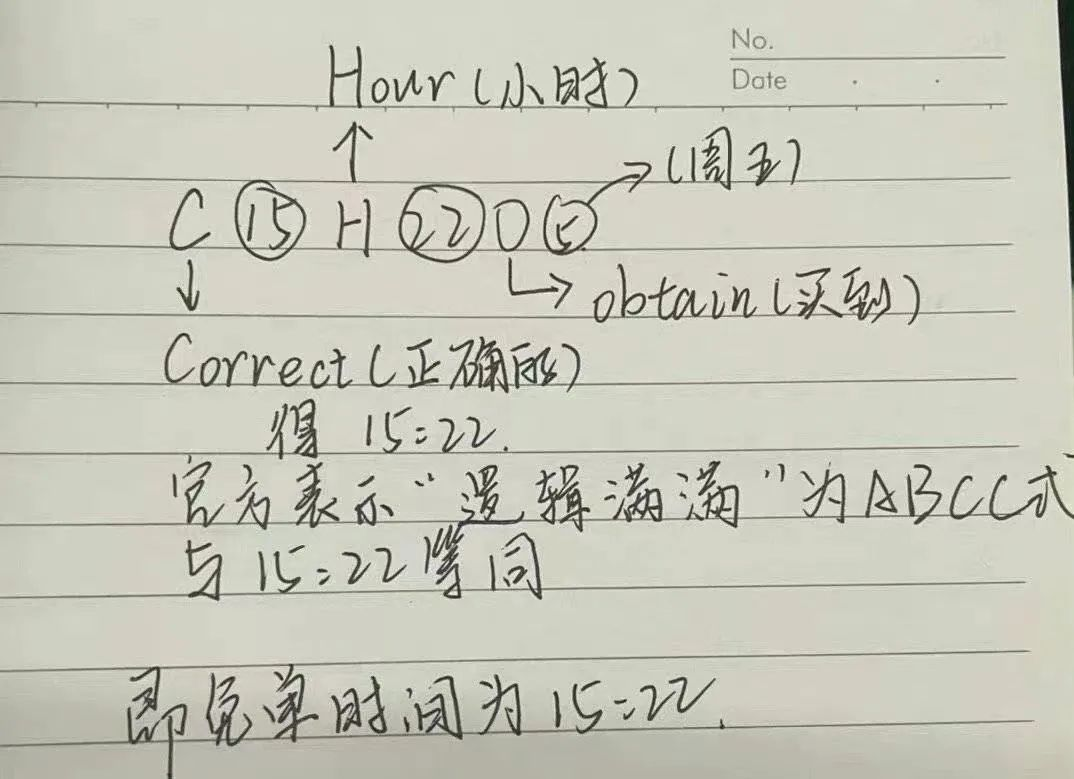 No.
Date
Hour(小时)
↑
→(周五)
C 15 H 22 O 5
↓ → obtain(买到)
Correct(正确的)
得 15:22.
官方表示“逻辑满满”为ABCC式
与15:22等同
即免单时间为15:22.